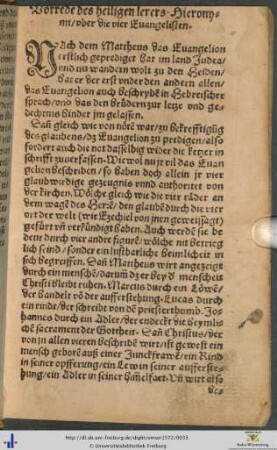 Vorrede des heiligen lerers Hierony-
mi/vber die vier Euangelisten.
NAch dem Mattheus das Euangelion
erstlich geprediget hat im land Judea/
vnd nu wandern wolt zu den Heiden/
hat er der erst vnder den andern allen/
das Euangelion auch beschrybē in Hebreischer
sprach/vnd das den brüdern zur letze vnd ge-
dechtnis hinder jm gelassen.
Dañ gleich wie von nöte war/zu bekrefftigūg
des glaubens/dz Euangelion zu predigen/also
fordert auch die not dasselbig wider die ketzer in
schrifft zuuerfassen. Wiewol nu je vil das Euan
gelion beschreiben/so haben doch allein je vier
glaubwirdige gezeugnis vnnd authoritet von
der kirchen. Wölche gleich wie die vier räder an
dem wagē des Herē/den glaubē durch die vier
ort der welt (wie Ezechiel von jnen geweissagt)
gefürt vñ verkündigt haben. Auch werdē sie be
deut durch vier andre figurē/wölche nit betrieg
lich seind/sonder ein lustbarliche heimlicheit in
sich begreiffen. Dañ Mattheus wirt angezeigt
durch ein mensche/darum dz er bey d menscheit
Christi bleibt ruhen. Marcus durch ein Löwē/
der handelt vō der aufferstehung. Lucas durch
ein rinde/der schreibt von dē priesterthumb. Jo-
hannes durch ein Adler/der endeckt die heymli-
chē sacrament der Gottheit. Dañ Christus/der
von jn allen vieren beschribē wirt/ist gewest ein
mensch geborē auß einer Junckfrawē/ein Rind
in seiner opfferung/ein Lewin seiner aufferste-
hung/ein Adler in seiner himelfart. Vñ wirt also
be-
http://dl.ub.uni-freiburg.de/diglit/emser1572/0033
© Universitätsbibliothek Freiburg